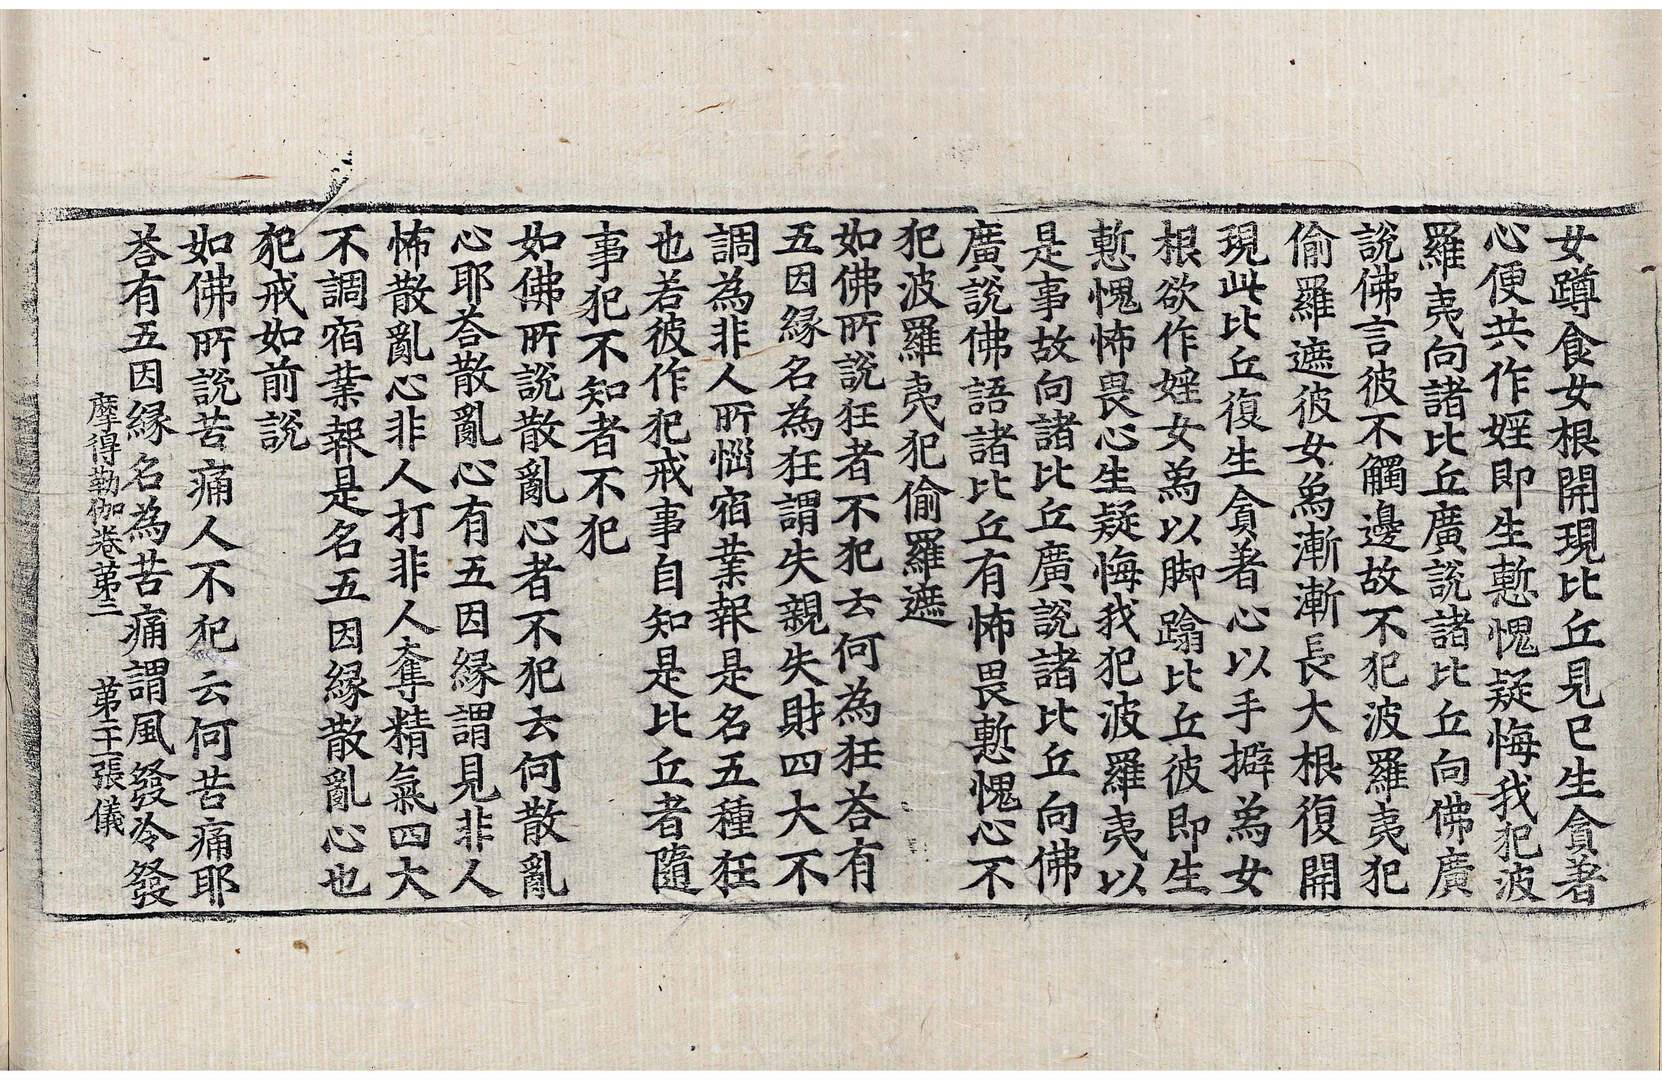 女蹲食女根開現比丘見已生貪著
心便共作婬即生慙愧疑悔我犯波
羅夷向諸比丘廣說諸比丘向佛廣
說佛言彼不觸邊故不犯波羅夷犯
偷羅遮彼女爲漸漸長大根復開
現此比丘復生貪著心以手擗爲女
根欲作婬女爲以脚蹹比丘彼即生
慙愧怖畏心生疑悔我犯波羅夷以
是事故向諸比丘廣說諸比丘向佛
廣說佛語諸比丘有怖畏慙愧心不
犯波羅夷犯偷羅遮
如佛所說狂者不犯云何為狂荅有
五因縁名為狂謂失親失財四大不
調為非人所惱宿業報是名五種狂
也若彼作犯戒事自知是比丘者隨
事犯不知者不犯
如佛所說散亂心者不犯云何散亂
心耶荅散亂心有五因縁謂見非人
怖散亂心非人打非人奪精氣四大
不調宿業報是名五因縁散亂心也
犯戒如前說
如佛所說苦痛人不犯云何苦痛耶
荅有五因縁名為苦痛謂風發冷發
摩得勒伽卷第二 第二十一張 儀